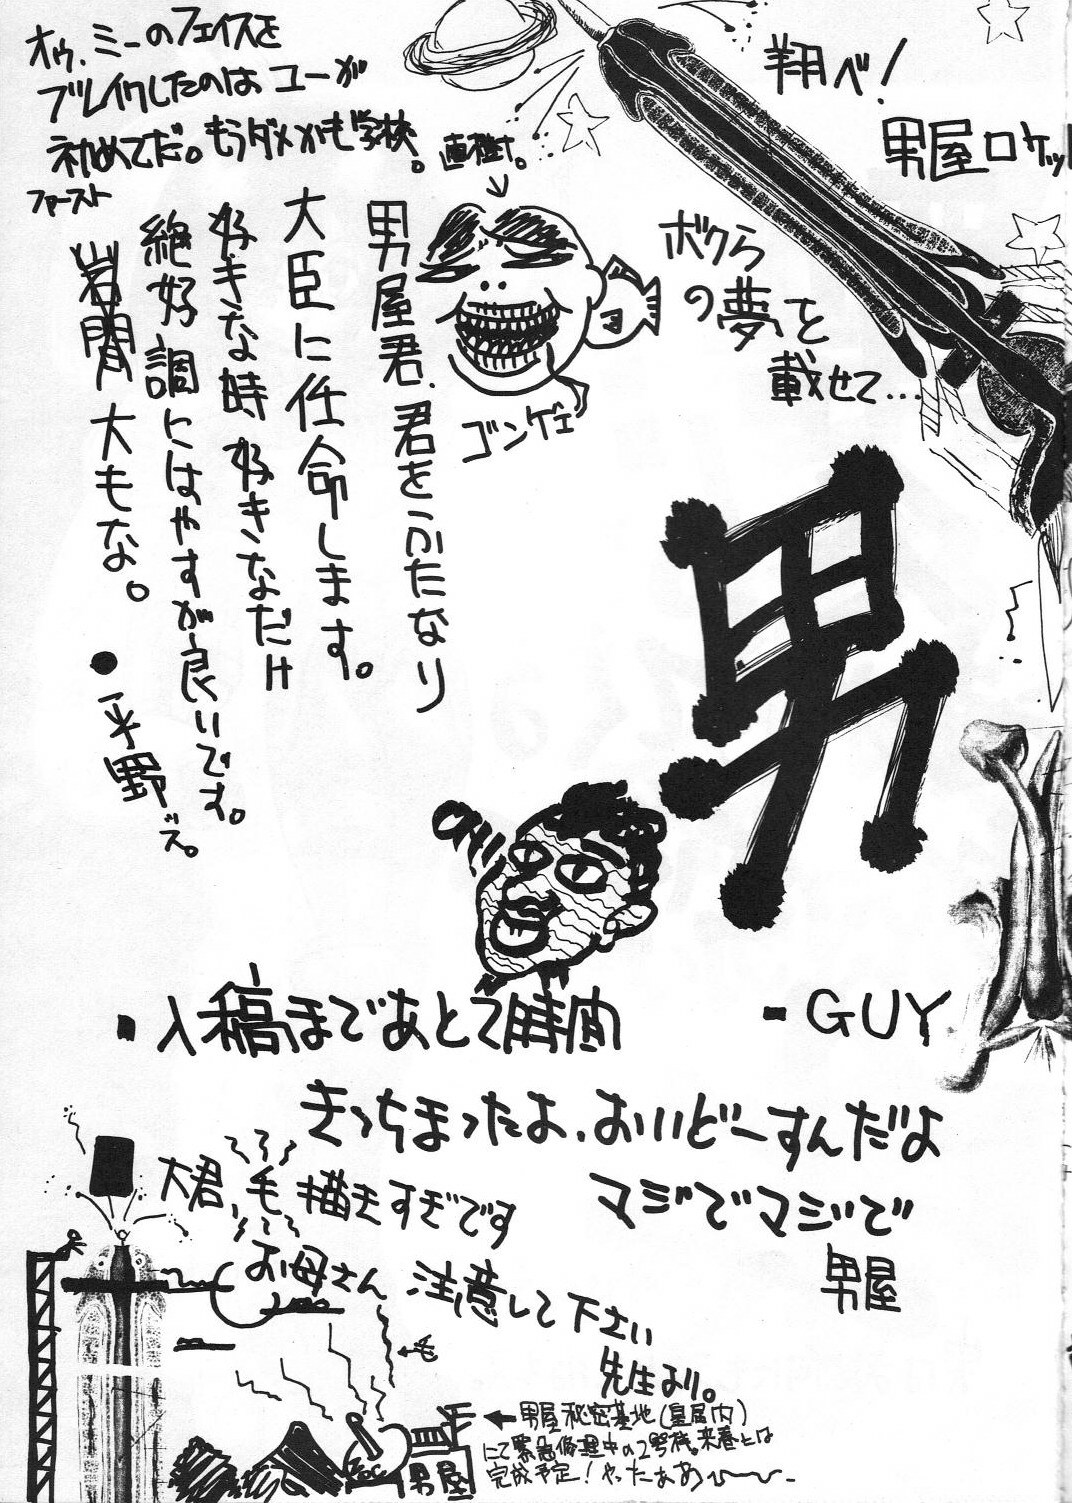 オウ、ミーのフェイスを
ブレイクしたのはユーが
初めてだ。もうダメかも学校。
ファースト
直樹。
ゴンゲェ
翔べ!
男屋ロケッ
ボクら
の夢を
載せて…
男屋君、君をふたなり
大臣に任命します。
好きな時好きなだけ
絶好調にはやすが良いです。
岩間 大もな。
●平野ズ。
男
CHU
- GUY
・入稿まであと2時間
きっちまったよ、おいどーすんだよ
マジでマジで
男屋
大君、毛描きすぎです
お母さん 注意して下さい
先生より。
←毛
←男屋秘密基地(皇居内)
にて緊急修理中の2号機。来春とは
完成予定!やったぁあ〜〜
男屋